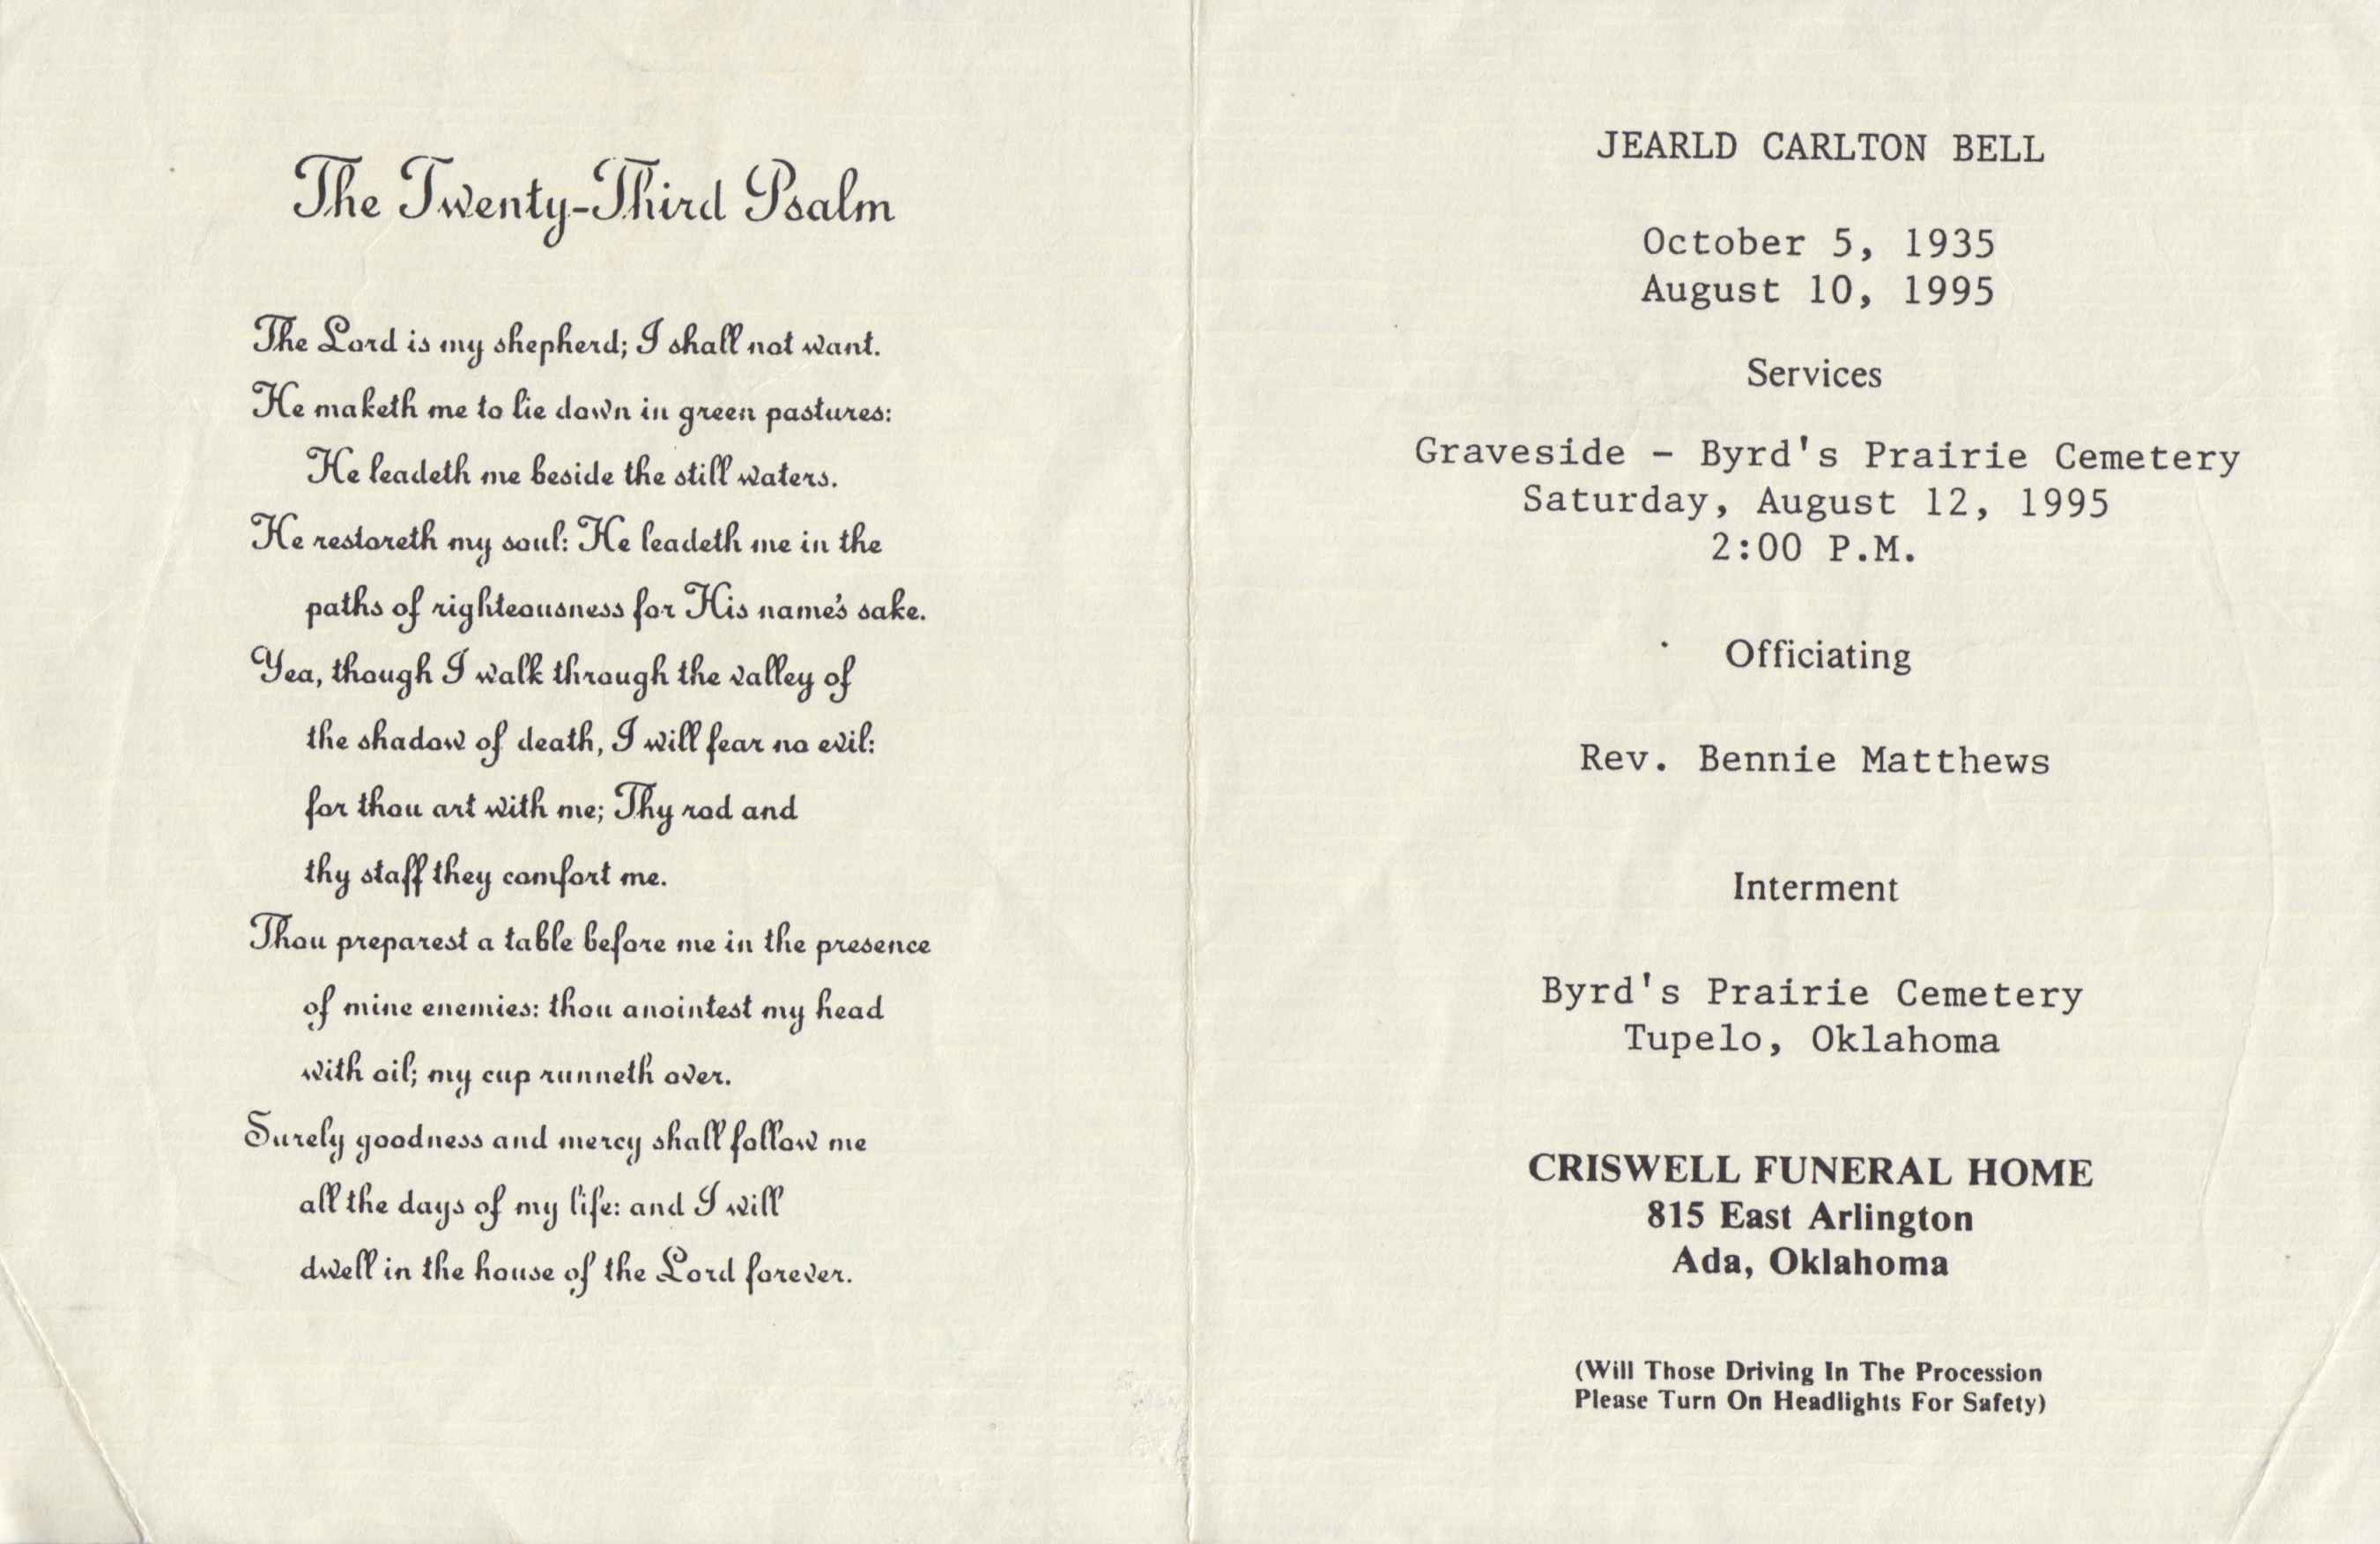 The Twenty-Third Psalm
The Lord is my shepherd; I shall not want.
He maketh me to lie down in green pastures:
He leadeth me beside the still waters.
He restoreth my soul: He leadeth me in the
paths of righteousness for His name's sake.
Yea, though I walk through the valley of
the shadow of death, I will fear no evil:
for thou art with me; Thy rod and
thy staff they comfort me.
Thou preparest a table before me in the presence
of mine enemies: thou anointest my head
with oil; my cup runneth over.
Surely goodness and mercy shall follow me
all the days of my life: and I will
dwell in the house of the Lord forever.
JEARLD CARLTON BELL
October 5, 1935
August 10, 1995
Services
Graveside - Byrd's Prairie Cemetery
Saturday, August 12, 1995
2:00 P.M.
Officiating
Rev. Bennie Matthews
Interment
Byrd's Prairie Cemetery
Tupelo, Oklahoma
CRISWELL FUNERAL HOME
815 East Arlington
Ada, Oklahoma
(Will Those Driving In The Procession
Please Turn On Headlights For Safety)